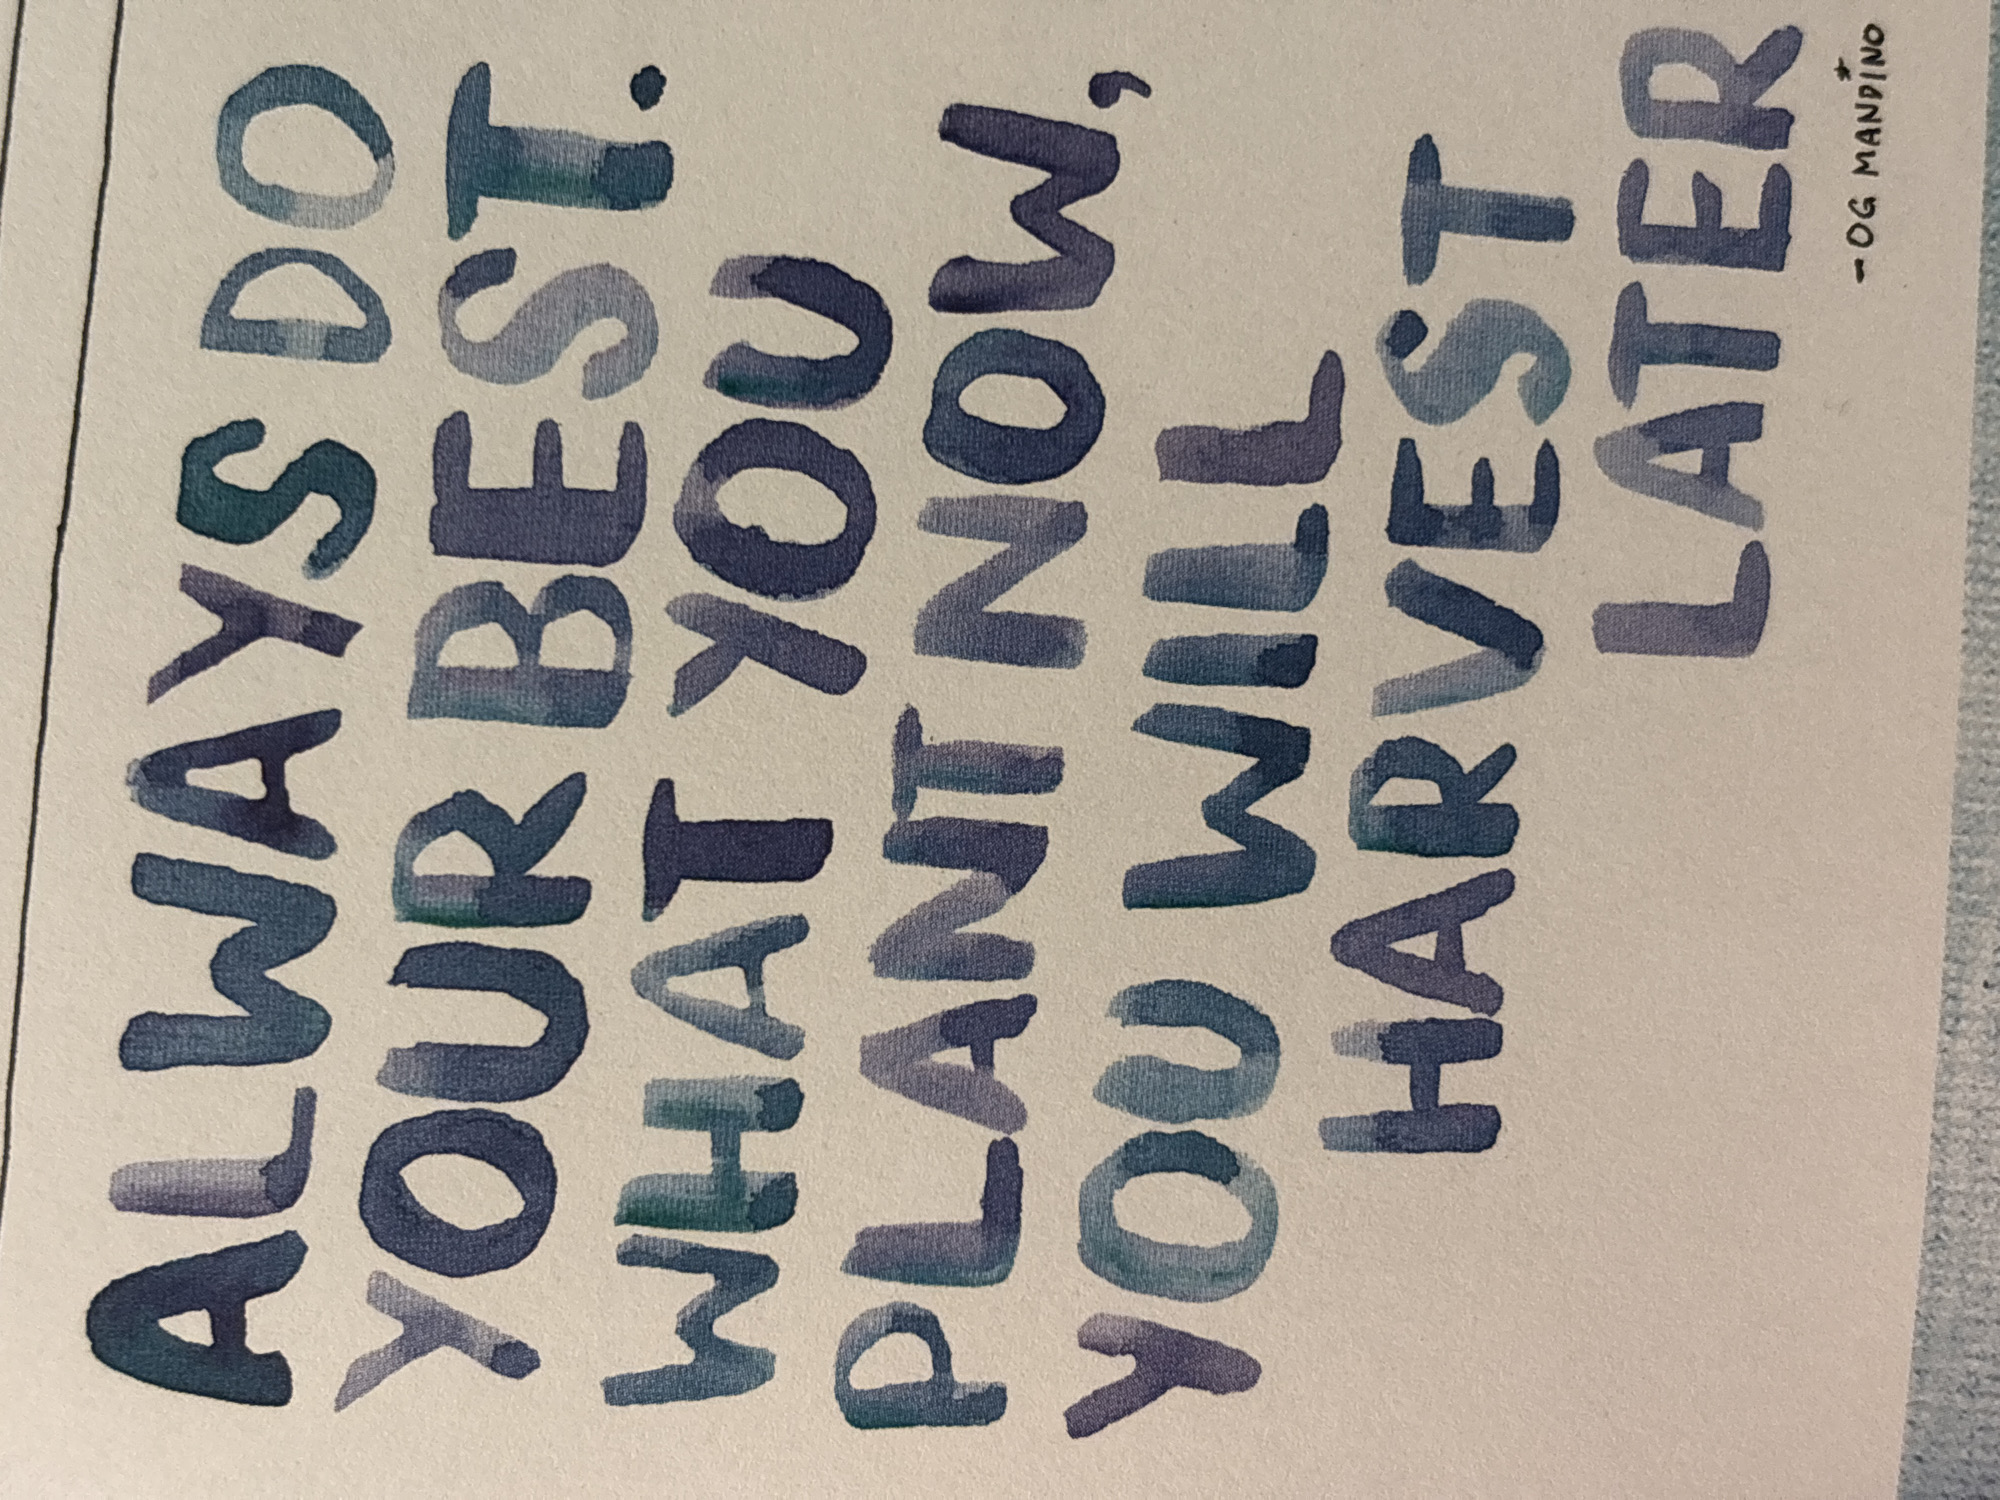 ALWAYS DO
YOUR BEST.
WHAT YOU
PLANT NOW,
YOU WILL
HARVEST
LATER
-OG MANDINO